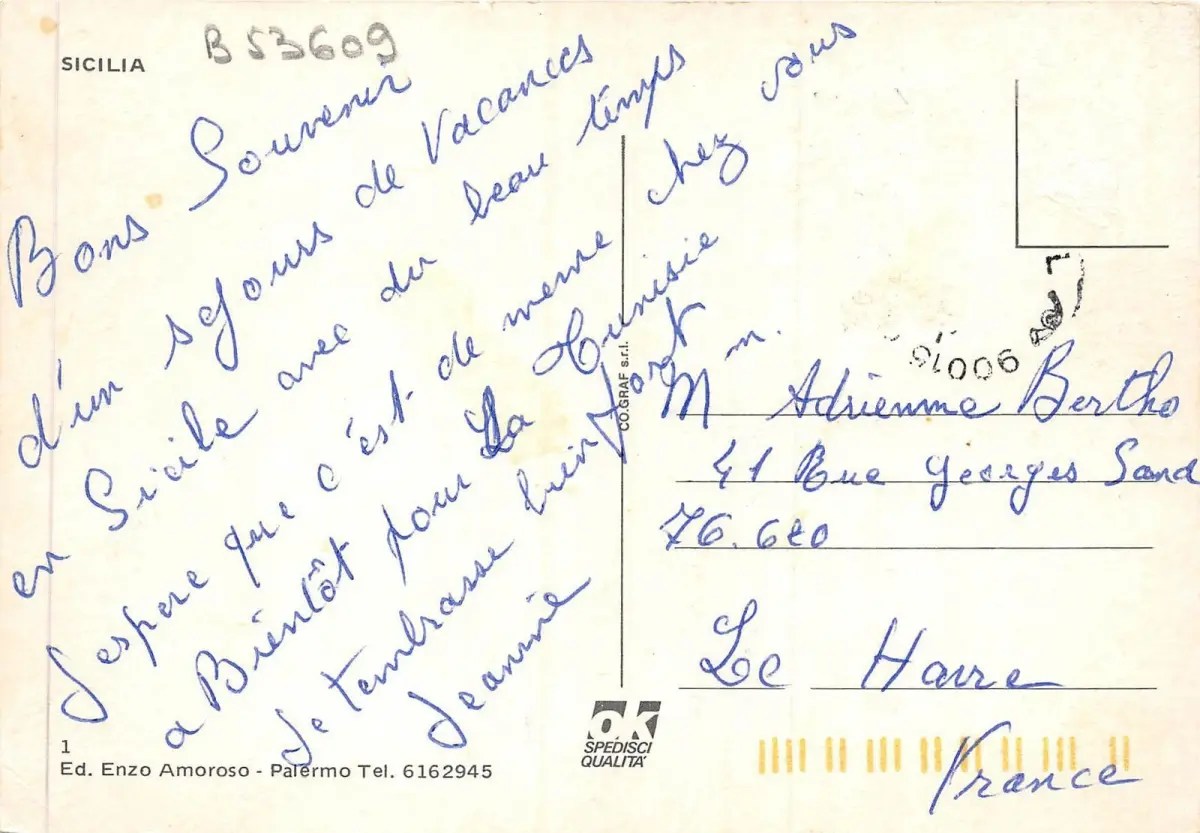 SICILIA
B 53609
Bons Souvenir
d'un séjours de Vacances
en Sicile avec du beau temps
J'espere que c'est de meme chez vous
a Bientôt pour La Tunisie
Je t'embrasse bien fort
Jeannine
CO.GRAF s.r.l.
M m.
Adrienne Bertho
41 Rue Georges Sand
76.620
Le Havre
France
OK
SPEDISCI
QUALITA'
1
Ed. Enzo Amoroso - Palermo Tel. 6162945